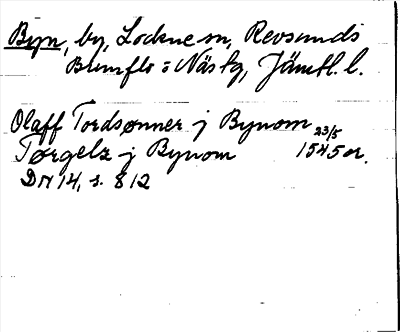 Byn, by, Lockne sn, Revsunds
Brunflo o Näs tg, Jämtl. l.
Olaff Tordsønner j Bynom 23/5
Tørgels j Bynom 1545 or.
DN 14, s. 812